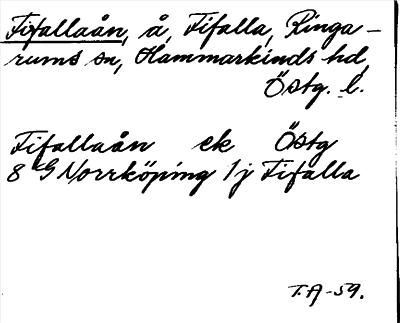 Fifallaån, å, Fifalla, Ringa-
rums sn, Hammarkinds hd,
Östg. l.
Fifallaån ek Östg
8 G Norrköping 1j Fifalla
T.A-59.